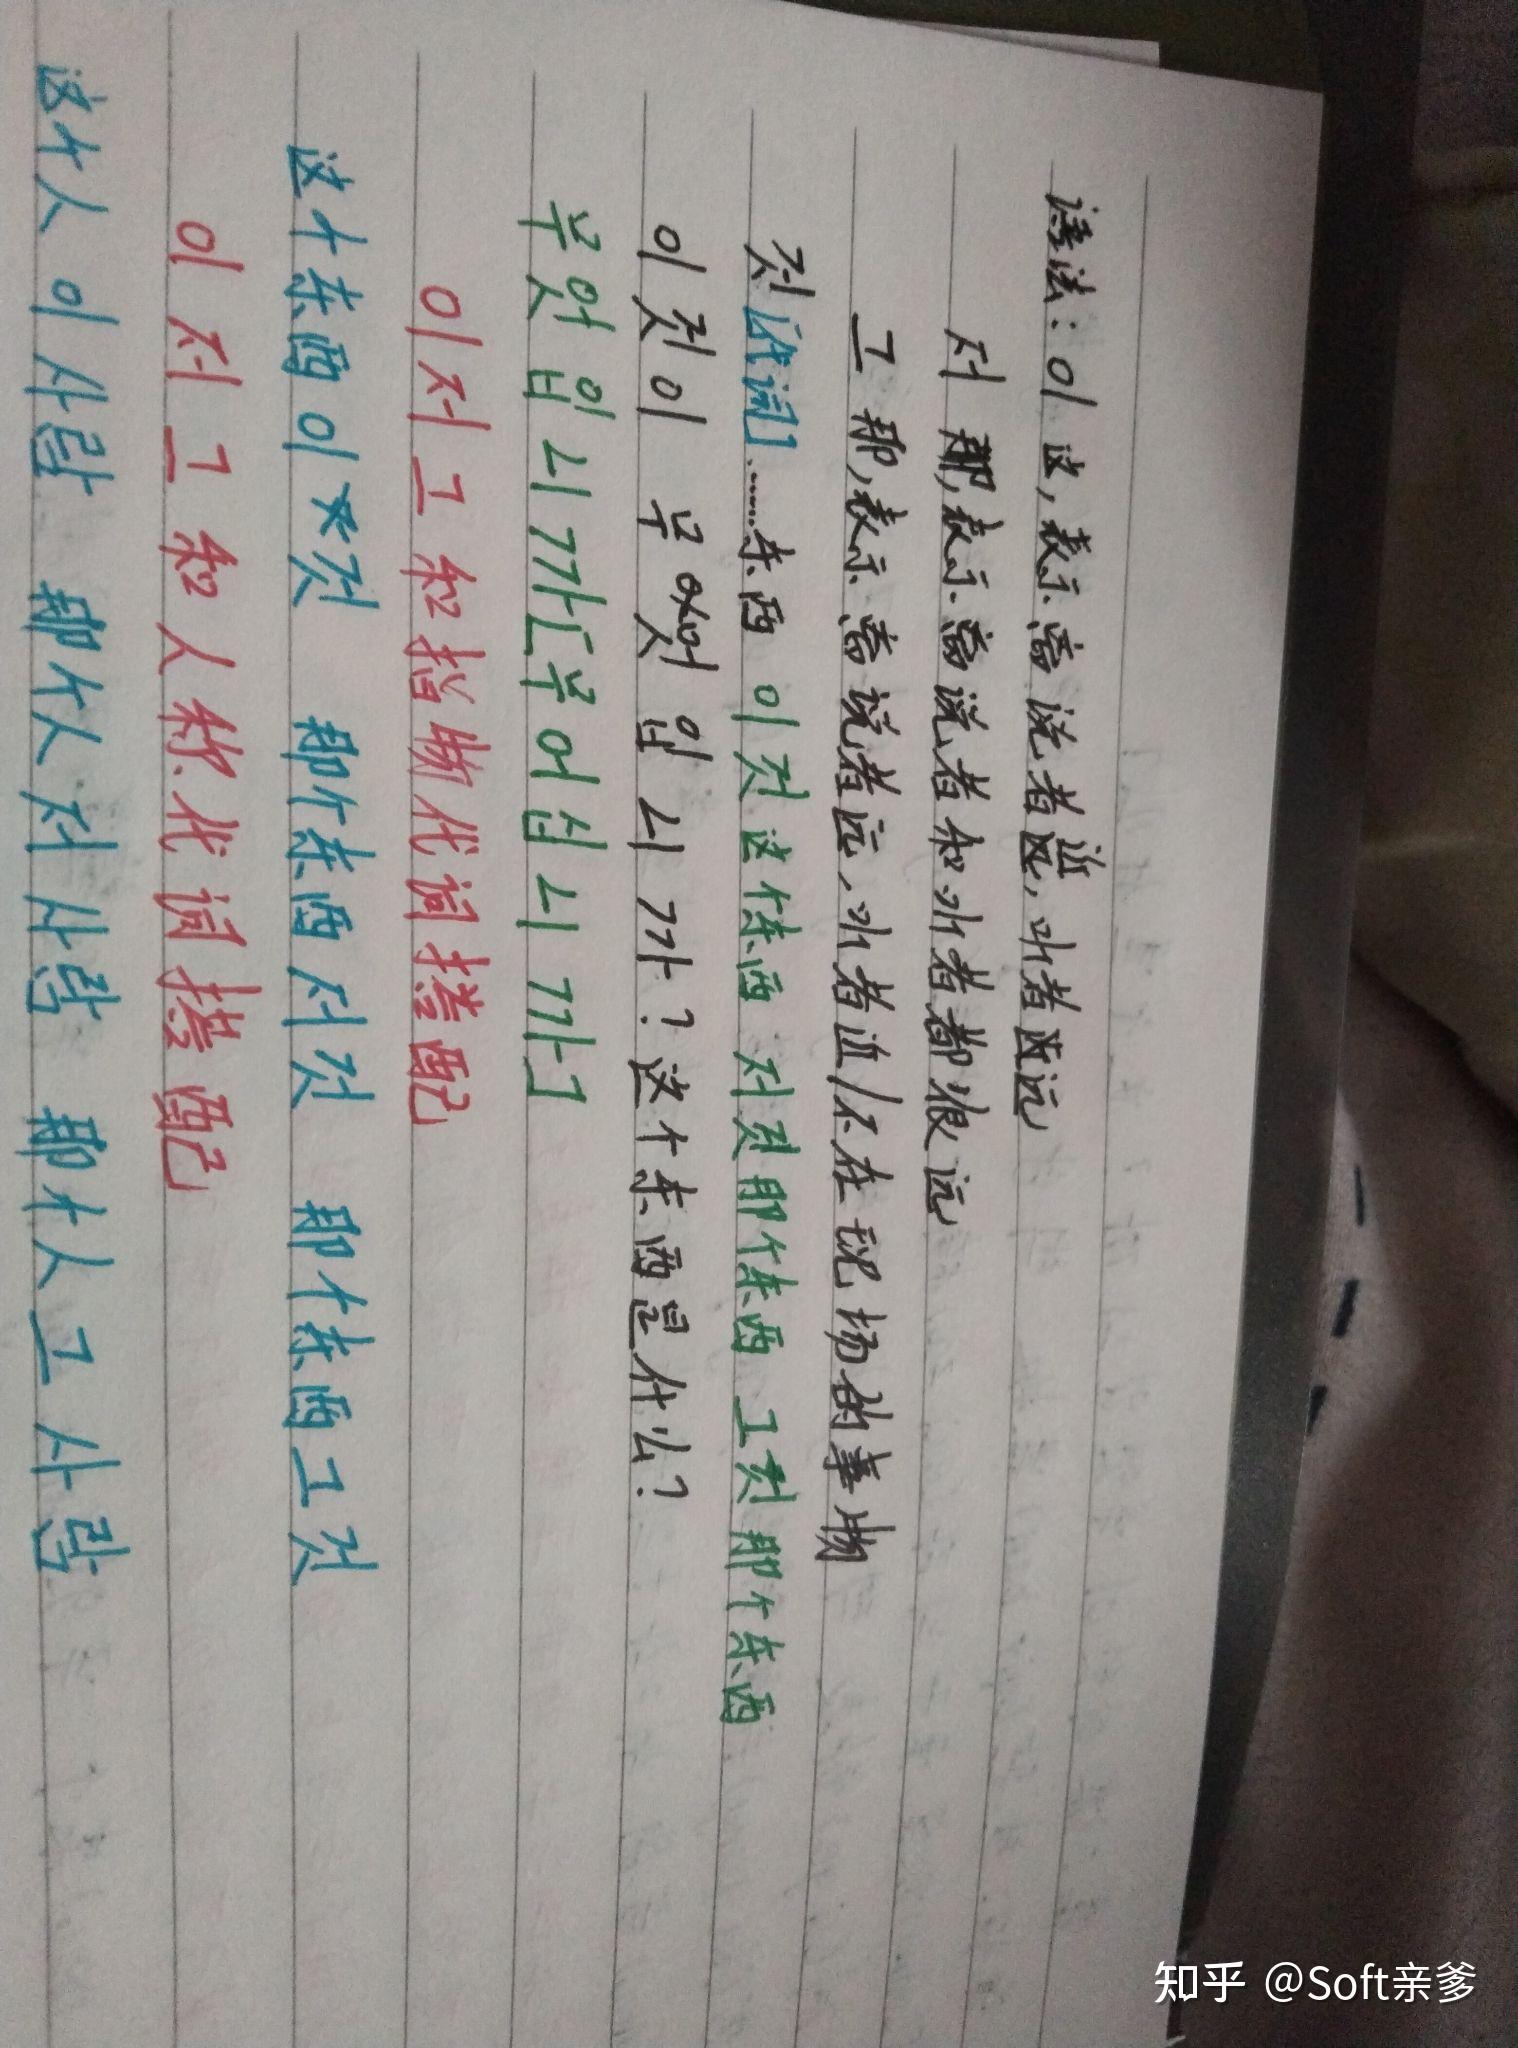 语法：이 这，表示离说者近，听者远
저 那，表示离说者和听者都很远
그 那，表示离说者远，听者近/不在现场的事物
것[代词]……东西 이것 这个东西 저것 那个东西 그것 那个东西
이것이 무엇입니까？这个东西是什么？
무엇입니까[무어심니까]
이 저 그 和指物代词搭配
这个东西 이것 那个东西 저것 那个东西 그것
이 저 그 和人称代词搭配
这个人 이 사람 那个人 저 사람 那个人 그 사람
知乎 @Soft亲爹